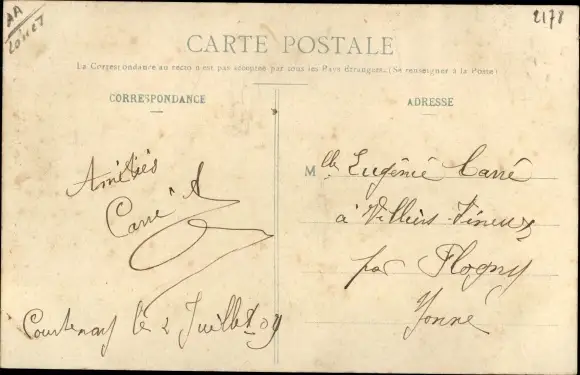 AA
Loiret
2178
CARTE POSTALE
La Correspondance au recto n'est pas acceptée par tous les Pays Étrangers. (Se renseigner à la Poste)
CORRESPONDANCE
Amitiés
Carré A
Courtenay le 2 Juillet 09
ADRESSE
Mlle Eugénie Carré
à Villiers Vineux
par Flogny
Yonne